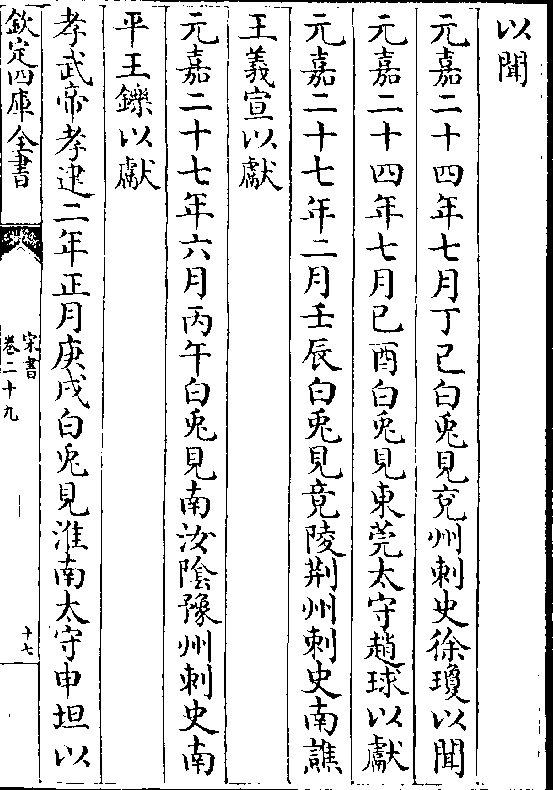 以聞
元嘉二十四年七月丁已白兎見兖州刺史徐瓊以聞
元嘉二十四年七月已酉白兎見東莞太守趙球以獻
元嘉二十七年二月壬辰白兎見竟陵荆州刺史南譙
王義宣以獻
元嘉二十七年六月丙午白兎見南汝隂豫州刺史南
平王鑠以獻
孝武帝孝建二年正月庚戌白兎見淮南太守申坦以
欽定四庫全書
宋書
卷二十九
十七